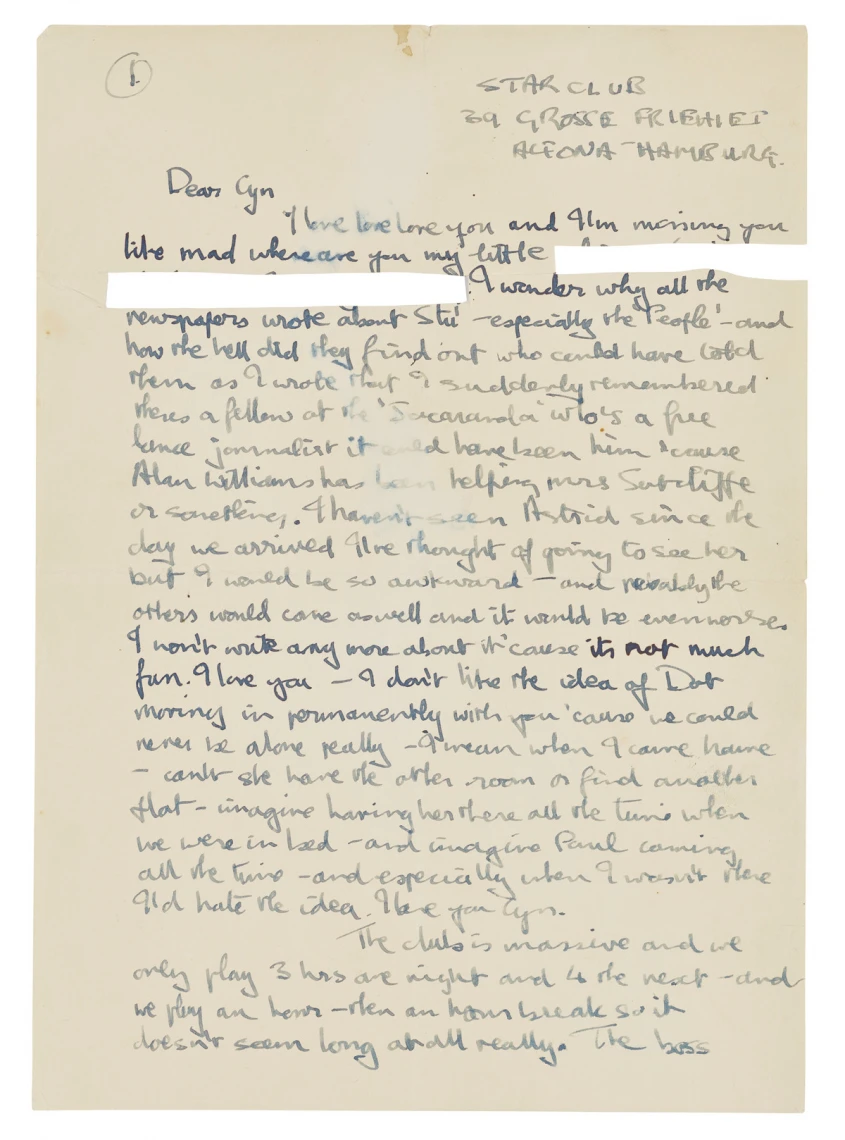 1.
STAR CLUB
39 GROSSE FRIEHIET
ALTONA HAMBURG.
Dear Cyn
I love love love you and I'm missing you
like mad where are you my little
I wonder why all the
newspapers wrote about Stu - especially the 'People' - and
how the hell did they find out who could have told
them as I wrote that I suddenly remembered
theres a fellow at the 'Jacaranda' who's a free
lance journalist it could have been him 'cause
Alan Williams has been helping mrs Sutcliffe
or something. I haven't seen Astrid since the
day we arrived I've thought of going to see her
but I would be so awkward - and probably the
others would come aswell and it would be even worse.
I won't write any more about it 'cause its not much
fun. I love you - I don't like the idea of Dot
moving in permanently with you 'cause we could
never be alone really - I mean when I come home
- can't she have the other room or find another
flat - imagine having her there all the time when
we were in bed - and imagine Paul coming
all the time - and especially when I wasn't there
I'd hate the idea. I love you Cyn.
The club is massive and we
only play 3 hrs one night and 4 the next - and
we play an hour - then an hour break so it
doesn't seem long at all really. The boss